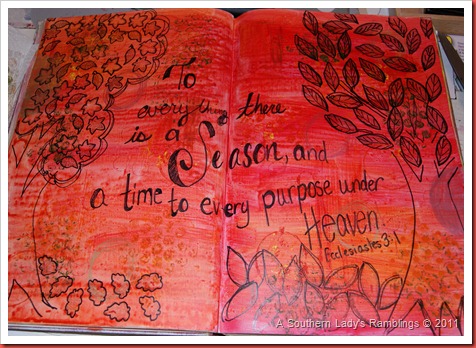 To
every thing there
is a
Season, and
a time to every purpose under
Heaven
Ecclesiastes 3:1
A Southern Lady's Ramblings © 2011